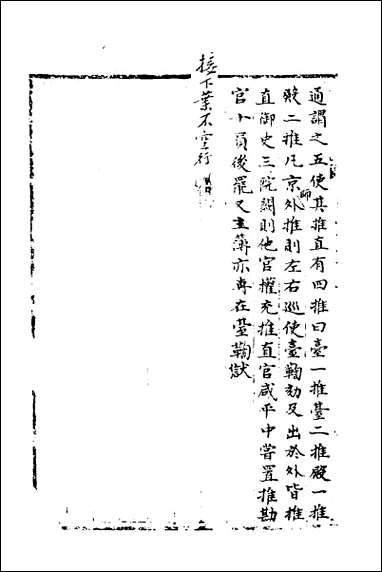 通謂之五使其推直有四推曰臺一推臺二推殿一推
殿二推凡京師外推則左右巡使臺鞫劾及出於外皆推
直御史三院闕則他官權充推直官咸平中嘗置推勘
官十員後罷又主簿亦專在臺鞫獄
接下葉不空行